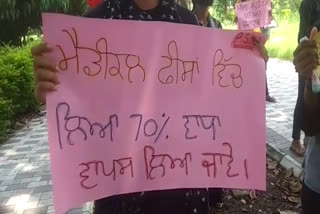 ਮੈਡੀਕਲ ਫੀਸਾਂ ਵਿੱਚ
ਲਿਆ 70% ਵਾਧਾ
ਵਾਪਸ ਲਿਆ ਜਾਵੇ।
PSU